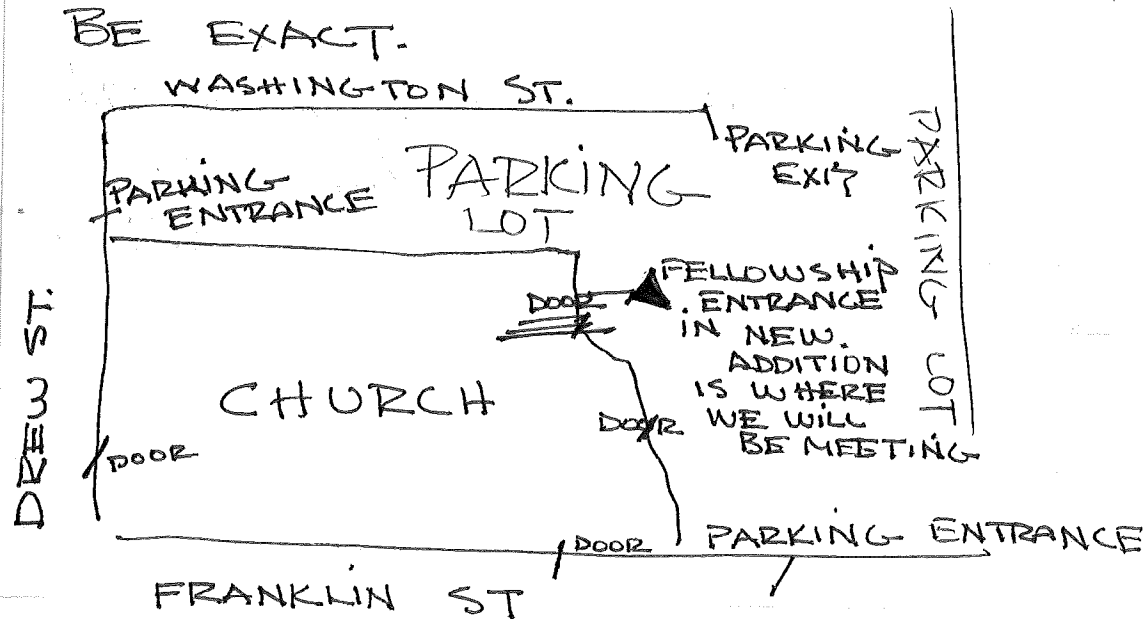 BE EXACT.
WASHINGTON ST.
PARKING
EXIT
PARKING LOT
PARKING
ENTRANCE
PARKING
LOT
DOOR
FELLOWSHIP
ENTRANCE
IN NEW.
ADDITION
IS WHERE
WE WILL
BE MEETING
DREW ST.
CHURCH
DOOR
DOOR
DOOR
PARKING ENTRANCE
FRANKLIN ST